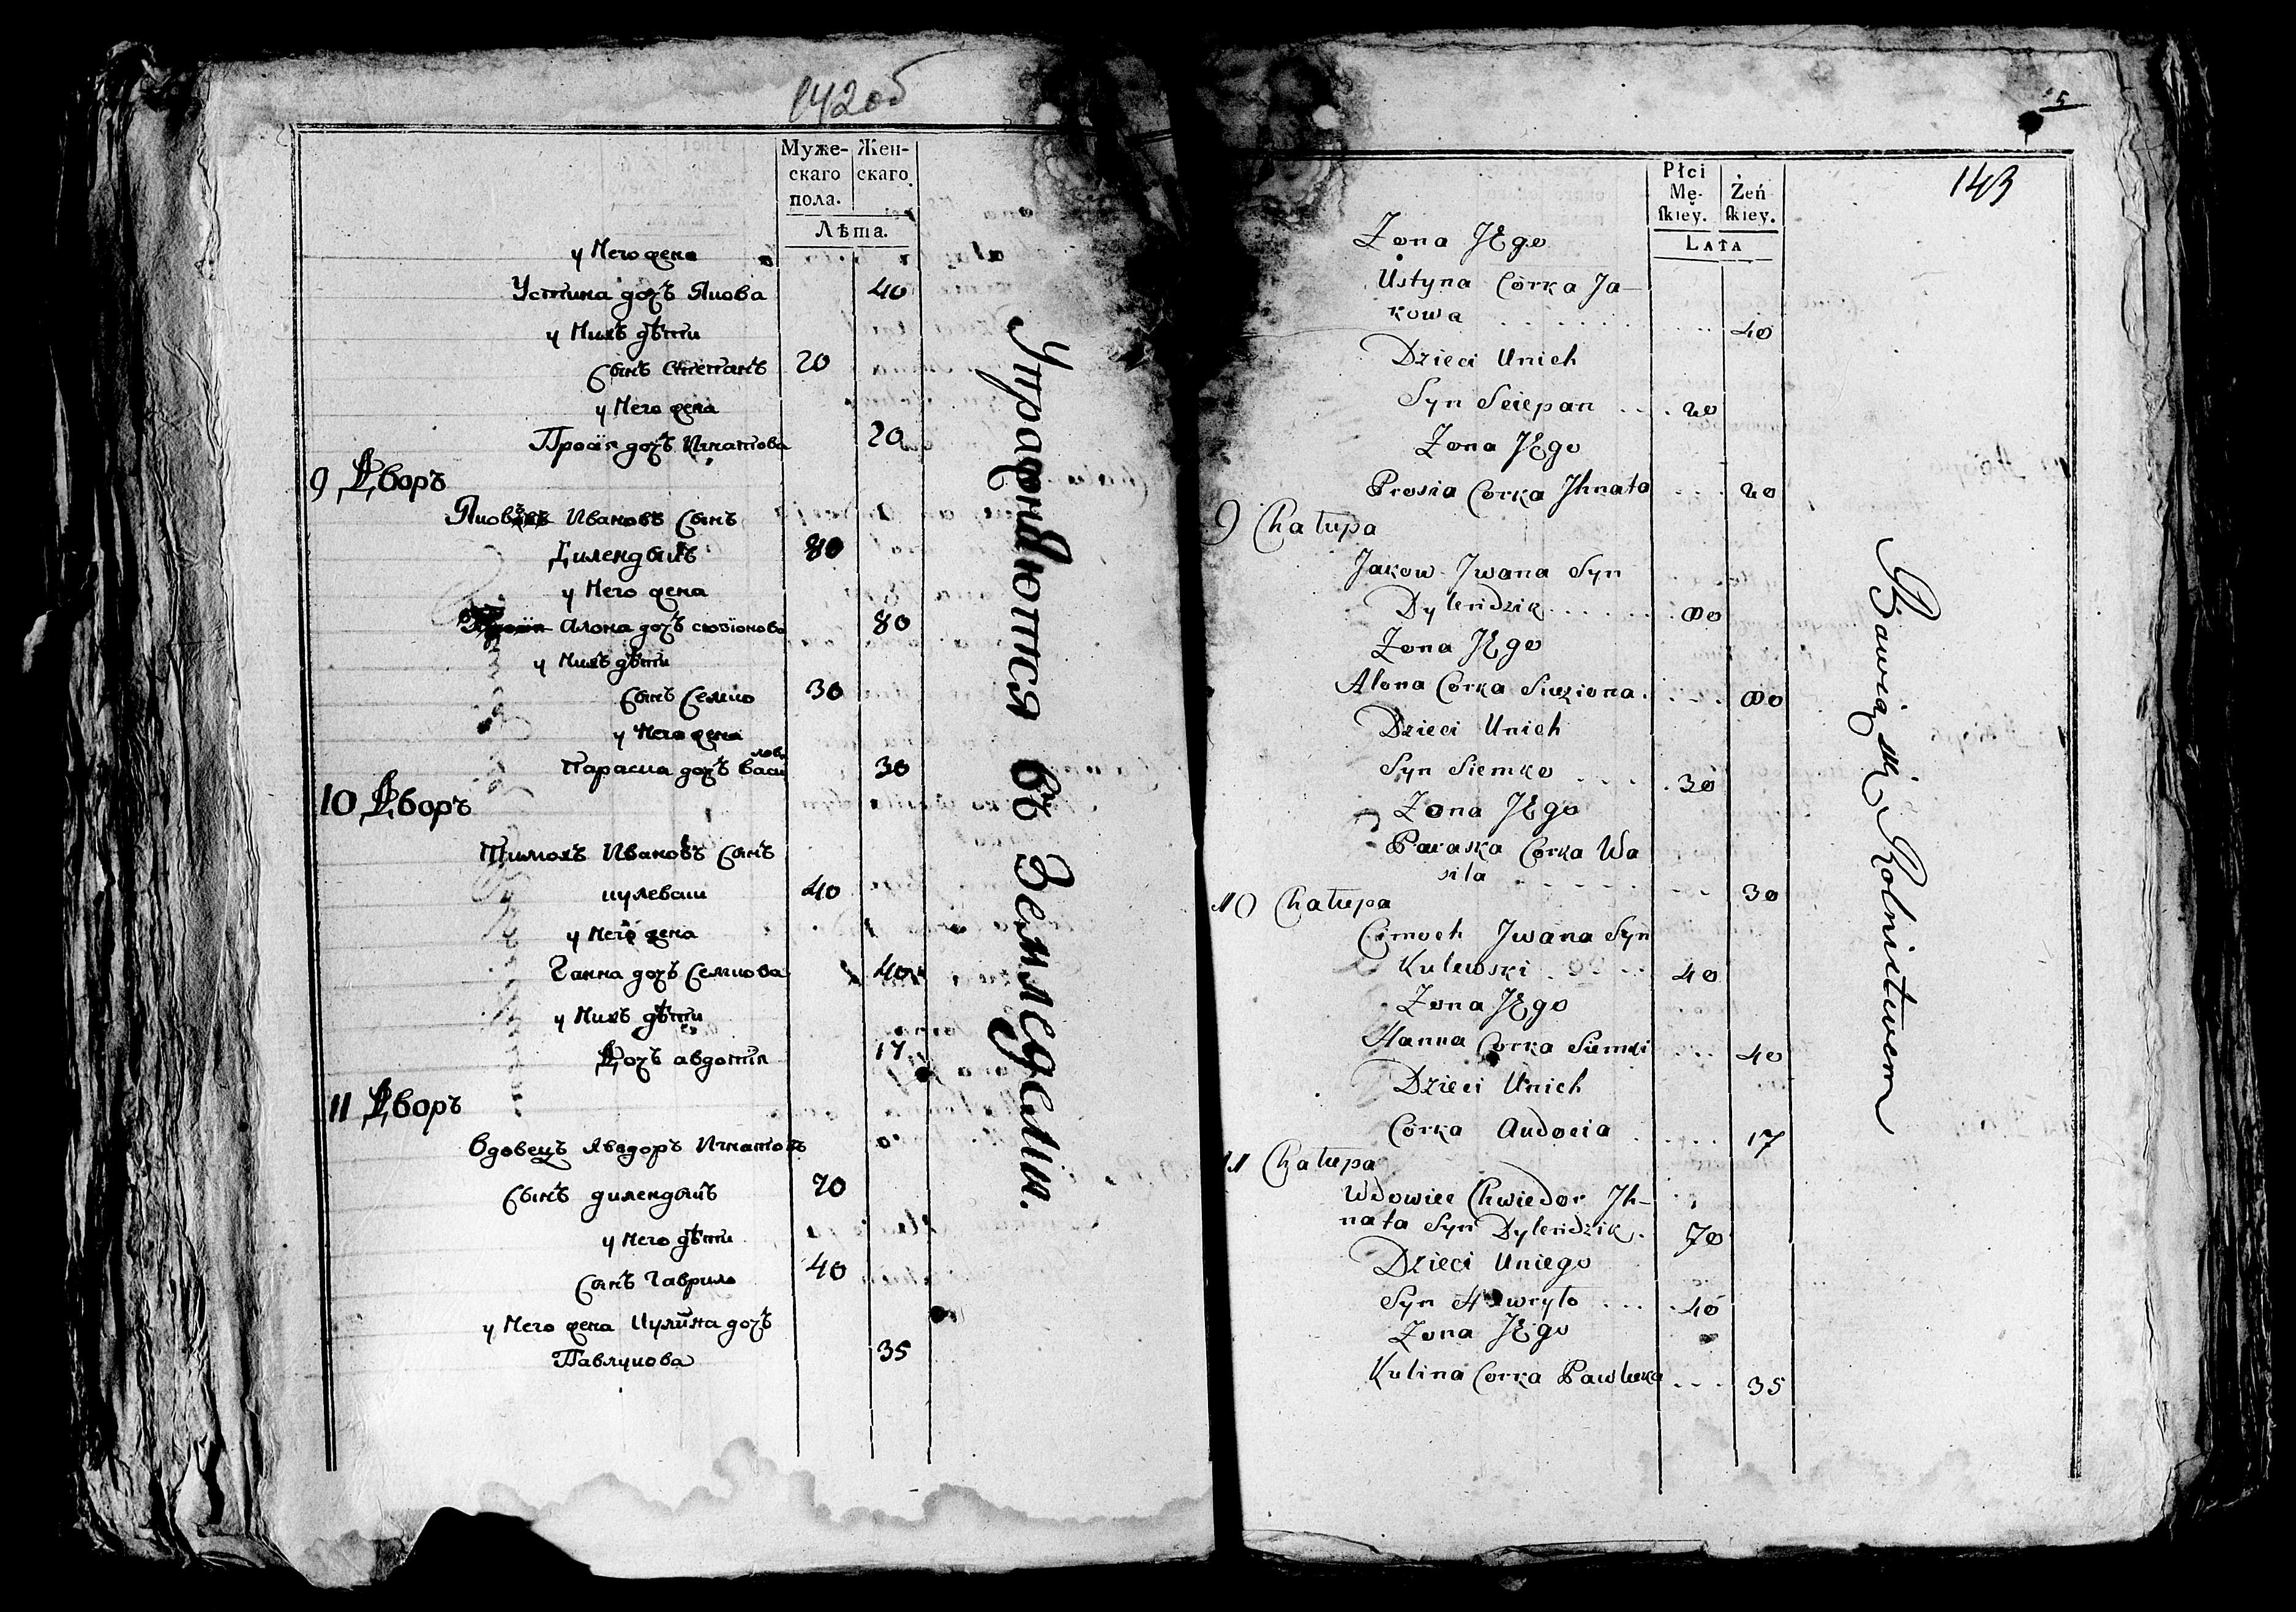 142об
Муже- Жен-
скаго скаго
пола.
Лѣта.
у Него жена
Устина дочъ Якова 40
у Нихъ дѣти
Сынъ Степанъ 20
у Него жена
Прося дочъ Игнатова 20
9 Дворъ
Яковъ Ивановъ Сынъ
Дилендыкъ 80
у Него жена
Алона дочъ сюзіонова 80
у Нихъ дѣти
Сынъ Семко 30
у Него жена
Параска дочъ Васи
лова 30
10 Дворъ
Тимохъ Ивановъ Сынъ
кулевски 40
у Него жена
Ганна дочъ Семкова 40
у Нихъ дѣти
Дочъ авдотя 17
11 Дворъ
Вдовецъ Хведоръ Игнатовъ
Сынъ дилендыкъ 70
у Него дѣти
Сынъ Гаврило 40
у Него жена Кулина дочъ
Павлукова 35
Упражнѣются въ Земледелии.
143
Płci Żeń
Mę- ſkiey.
ſkiey.
LATA
Zona JEgo
Ustyna Corka Ja-
kowa 40
Dzieci Unich
Syn Sciepan 20
Zona JEgo
Prosia Corka Jhnata 20
9 Chałupa
Jakow Jwana Syn
Dylendzik 80
Zona JEgo
Alona Corka Siuziona 80
Dzieci Unich
Syn Siemko 30
Zona JEgo
Paraska Corka Wa
sila 30
10 Chałupa
Cimoch Jwana Syn
Kulewski 40
Zona JEgo
Hanna Corka Siemki 40
Dzieci Unich
Córka Audocia 17
11 Chałupa
Wdowiec Chwiedor Jh-
nata Syn Dylendzik 70
Dzieci Uniego
Syn Hawryło 40
Zona JEgo
Kulina Corka Pawluka 35
Bawią się Rolnictwem